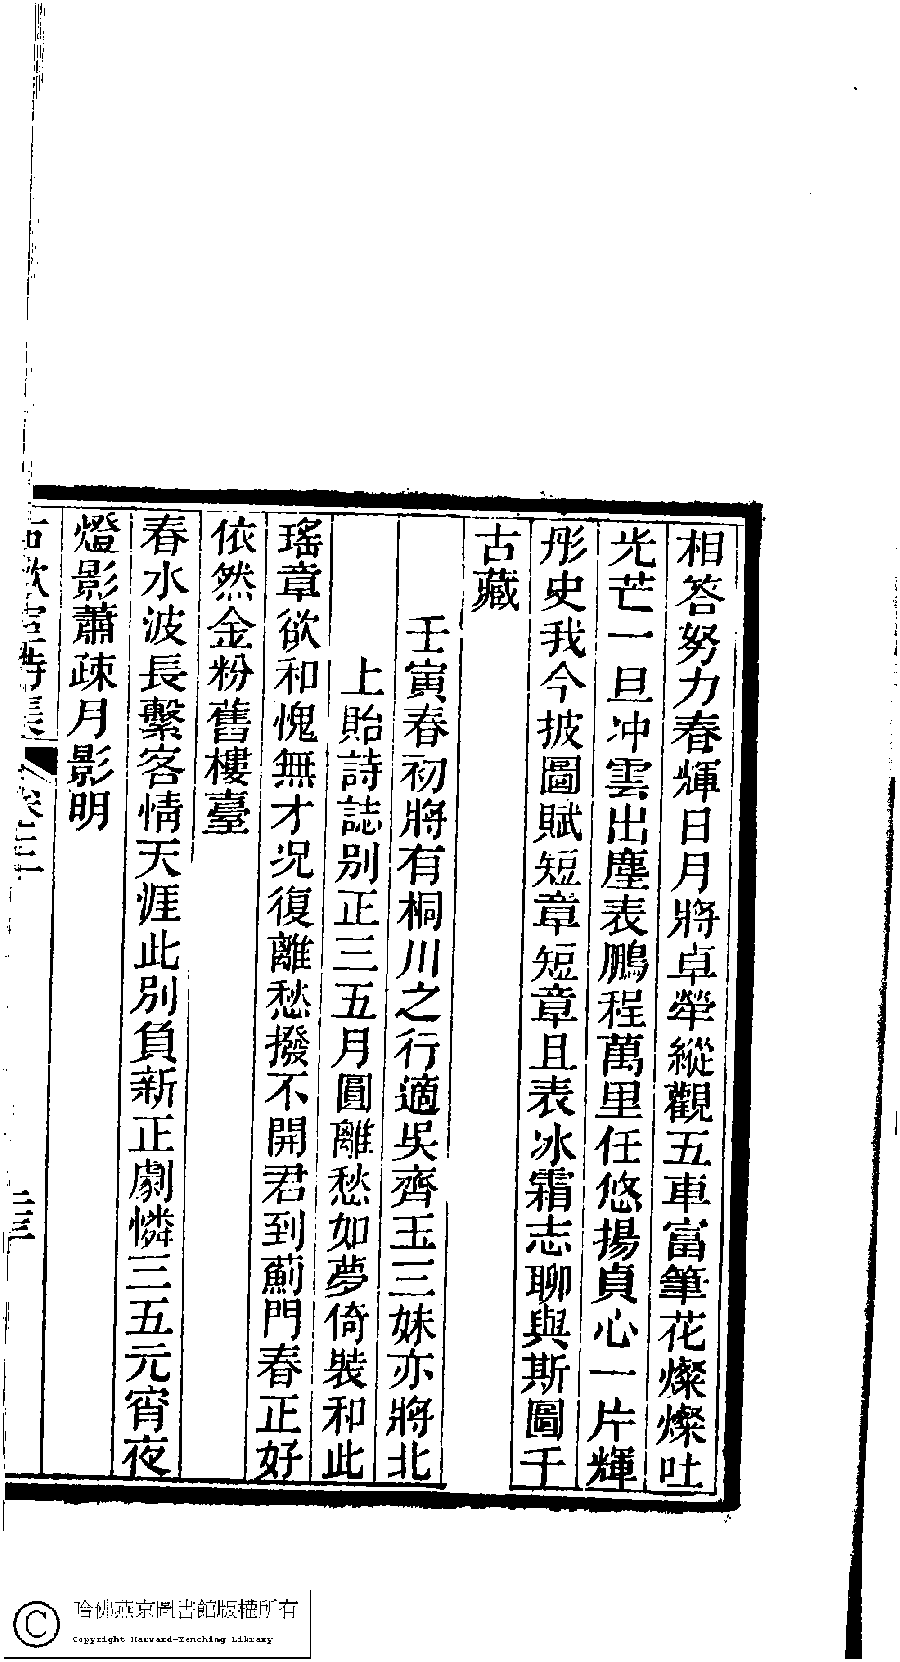 相答努力春輝日月將卓犖縱觀五車富筆花燦燦吐
光芒一旦冲雲出塵表鵬程萬里任悠揚貞心一片輝
彤史我今披圖賦短章短章且表冰霜志聊與斯圖千
古藏
壬寅春初將有桐川之行適吳齊玉三妹亦將北
上貽詩誌別正三五月圓離愁如夢倚裝和此
瑤章欲和愧無才况復離愁撥不開君到薊門春正好
依然金粉舊樓臺
春水波長繫客情天涯此別負新正劇憐三五元宵夜
燈影蕭疎月影明
詩集 卷三
二三
哈佛燕京圖書館版權所有
Copyright Harvard-Yenching Library